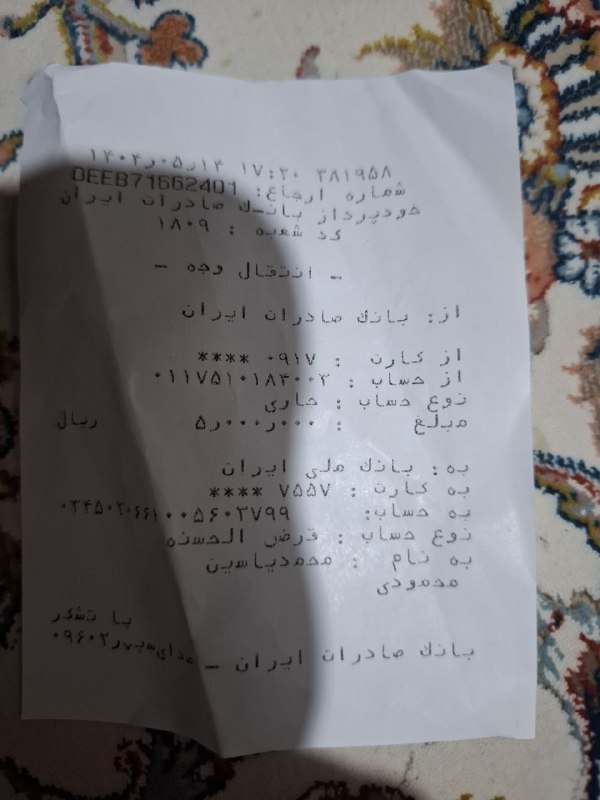 ۱۴۰۴ر۰۵ر۱۴ ۱۷:۲۰ ۲۸۱۹۵۸
شماره ارجاع: 0EEB71662401
خودپرداز بانک صادرات ایران
کد شعبه : ۱۸۰۹
- انتقال وجه -
از: بانک صادرات ایران
از کارت : ۰۹۱۷ ****
از حساب : ۰۱۱۷۵۱۰۱۸۴۰۰۳
نوع حساب : جاری
مبلغ : ۵ر۰۰۰ر۰۰۰ ریال
به: بانک ملی ایران
به کارت : ۷۵۵۷ ****
به حساب:
نوع حساب : قرض الحسنه
به نام : محمدیاسین
محمودی
با تشکر
بانک صادرات ایران - صدای سپهر ۰۹۶۰۲